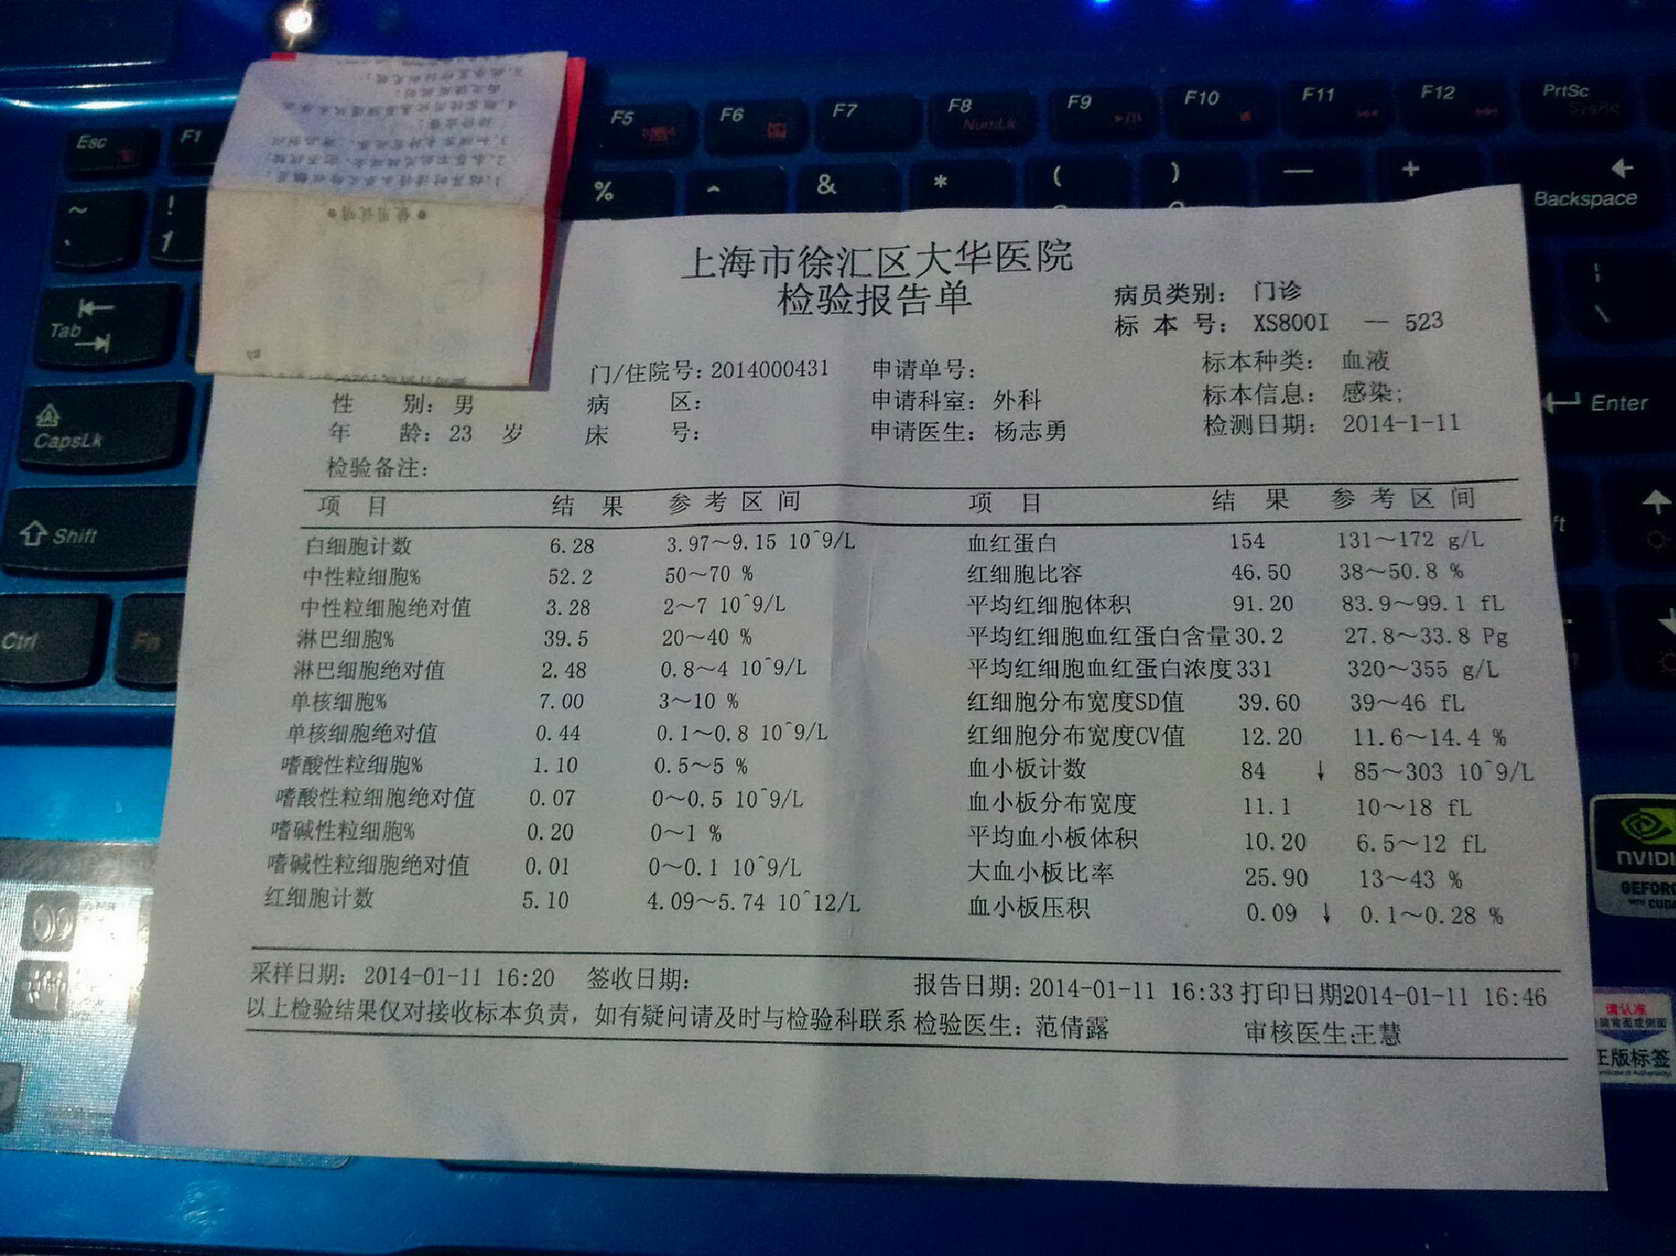 Esc
F1
F5
F6
F7
F8
NumLk
F9
F10
F11
F12
PrtSc
Backspace
Tab
CapsLk
Enter
Shift
Ctrl
Fn
上海市徐汇区大华医院
检验报告单
病员类别: 门诊
标 本 号: XS800I — 523
门/住院号: 2014000431 申请单号: 标本种类: 血液
性 别: 男 病 区: 申请科室: 外科 标本信息: 感染;
年 龄: 23 岁 床 号: 申请医生: 杨志勇 检测日期: 2014-1-11
检验备注:
项 目 结 果 参 考 区 间 项 目 结 果 参 考 区 间
白细胞计数 6.28 3.97~9.15 10^9/L 血红蛋白 154 131~172 g/L
中性粒细胞% 52.2 50~70 % 红细胞比容 46.50 38~50.8 %
中性粒细胞绝对值 3.28 2~7 10^9/L 平均红细胞体积 91.20 83.9~99.1 fL
淋巴细胞% 39.5 20~40 % 平均红细胞血红蛋白含量 30.2 27.8~33.8 Pg
淋巴细胞绝对值 2.48 0.8~4 10^9/L 平均红细胞血红蛋白浓度 331 320~355 g/L
单核细胞% 7.00 3~10 % 红细胞分布宽度SD值 39.60 39~46 fL
单核细胞绝对值 0.44 0.1~0.8 10^9/L 红细胞分布宽度CV值 12.20 11.6~14.4 %
嗜酸性粒细胞% 1.10 0.5~5 % 血小板计数 84 ↓ 85~303 10^9/L
嗜酸性粒细胞绝对值 0.07 0~0.5 10^9/L 血小板分布宽度 11.1 10~18 fL
嗜碱性粒细胞% 0.20 0~1 % 平均血小板体积 10.20 6.5~12 fL
嗜碱性粒细胞绝对值 0.01 0~0.1 10^9/L 大血小板比率 25.90 13~43 %
红细胞计数 5.10 4.09~5.74 10^12/L 血小板压积 0.09 ↓ 0.1~0.28 %
采样日期: 2014-01-11 16:20 签收日期: 报告日期: 2014-01-11 16:33 打印日期 2014-01-11 16:46
以上检验结果仅对接收标本负责, 如有疑问请及时与检验科联系 检验医生: 范倩露 审核医生:王慧
NVIDI
GEFORC
请认准
正版标签